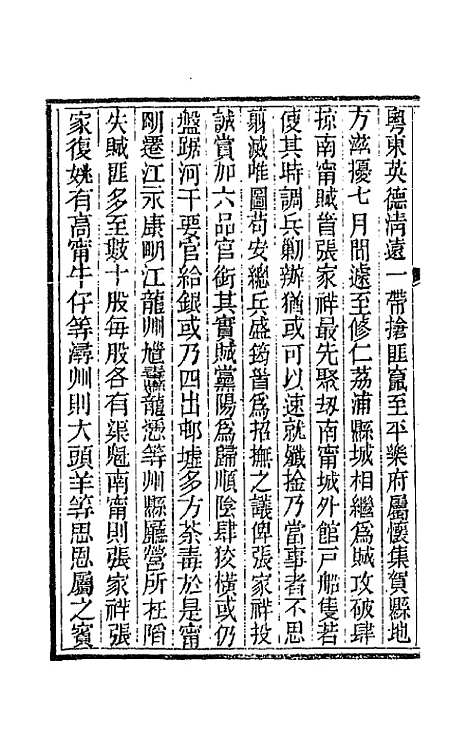 粵東英德清遠一帶搶匪竄至平樂府屬懷集賀縣地
方滋擾七月間遽至修仁荔浦縣城相繼爲賊攻破肆
掠南甯賊首張家祥最先聚刼南甯城外館戸船隻若
使其時調兵勦辦猶或可以速就殲捡乃當事者不思
翦滅唯圖苟安總兵盛筠首爲招撫之議俾張家祥投
誠賞加六品官銜其實賊黨陽爲歸順陰肆狡橫或仍
盤踞河干要官給銀或乃四出邨墟多方荼毒於是甯
明遷江永康明江龍州馗纛龍憑等州縣廳營所在陷
失賊匪多至數十股每股各有渠魁南甯則張家祥張
家復姚有高甯牛仔等潯州則大頭羊等思恩屬之賓